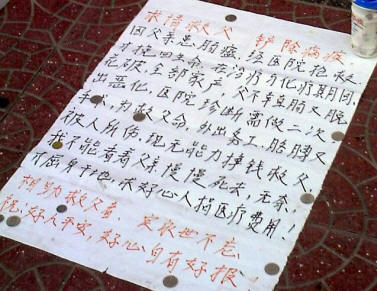 求情救父 铲除病疫
因父亲患脑癌,医院抢救
才挽回生命。在治疗与化疗期间
花费全部家产,父不幸脑又脱
出恶化,医院诊断需做二次
手术,为救父命,外出务工,胳膊又
被人所伤,现无能力挣钱救父,
我不能看着父亲慢慢死去,无奈,
才屈身于地,求好心人捐医疗费用!
相助救父者,定永世不忘
祝:好人平安,好心自有好报!